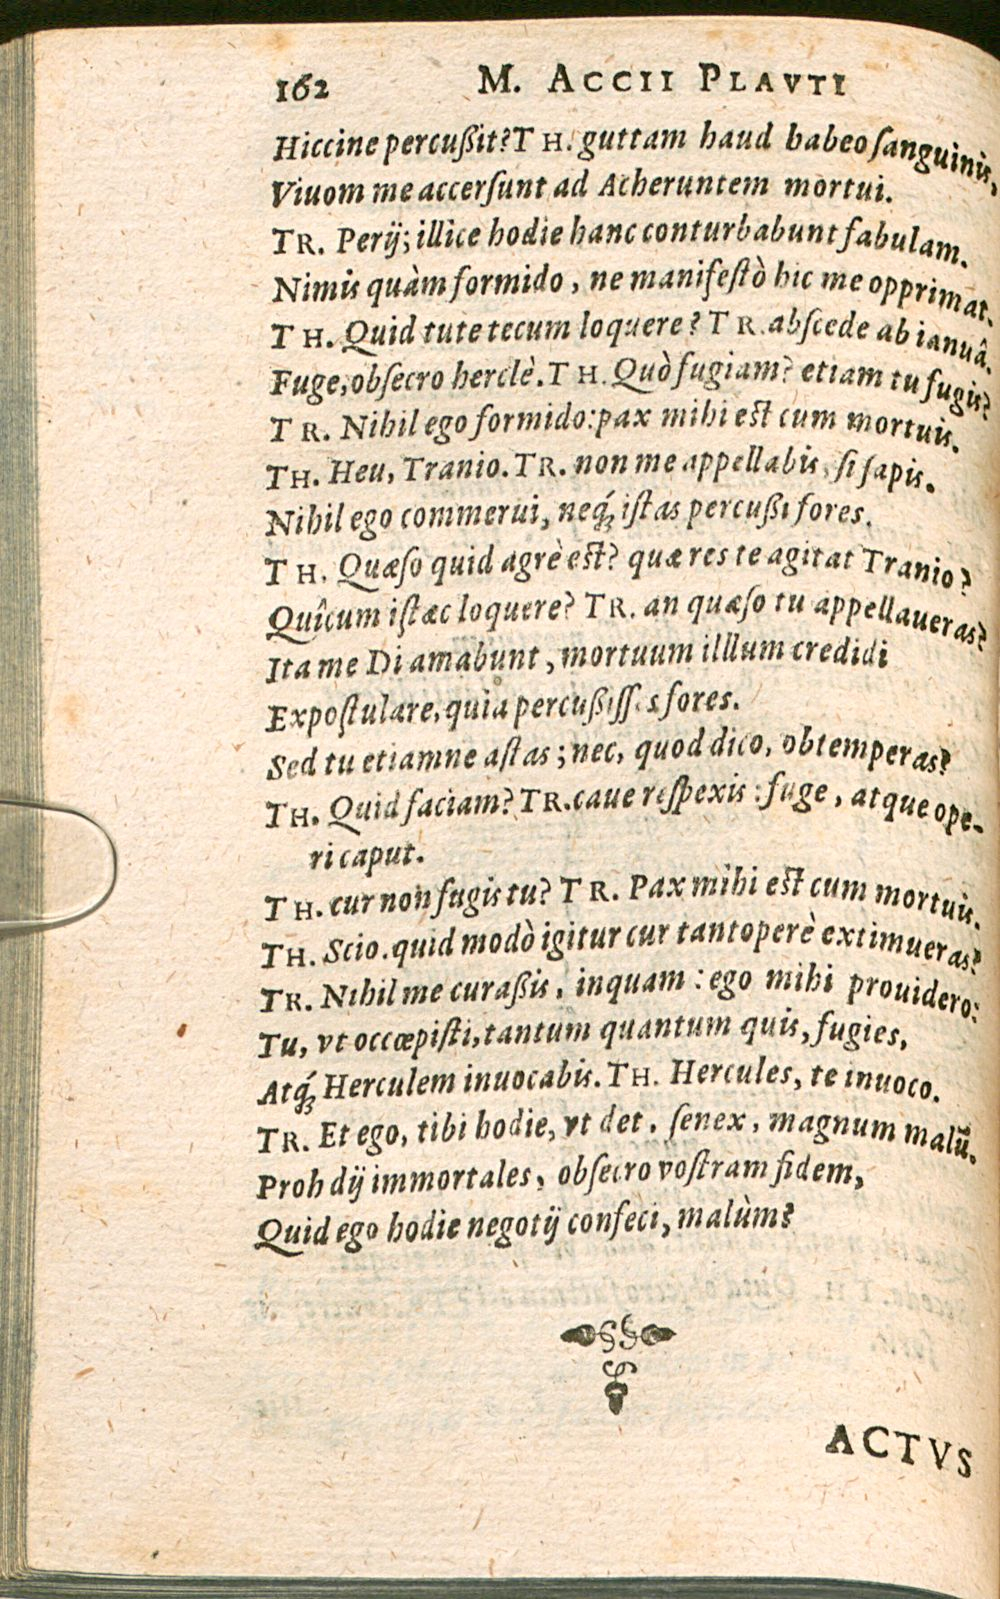 162 M. ACCII PLAVTI
Hiccine percußit? TH. guttam haud habeo ſanguinis,
Viuom me accerſunt ad Acheruntem mortui.
TR. Perij; illice hodie hanc conturbabunt fabulam.
Nimis quàm formido, ne manifeſtò hic me opprimat.
TH. Quid tute tecum loquere? TR. abſcede ab ianuâ.
Fuge, obſecro herclè. TH. Quò fugiam? etiam tu fugis?
TR. Nihil ego formido: pax mihi eſt cum mortuis.
TH. Heu, Tranio. TR. non me appellabis, ſi ſapis.
Nihil ego commerui, neq́; iſtas percußi fores.
TH. Quæſo quid agrè eſt? quæ res te agitat Tranio?
Quîcum iſtæc loquere? TR. an quæſo tu appellaueras?
Ita me Di amabunt, mortuum illlum credidi
Expoſtulare, quia percußiſſes fores.
Sed tu etiamne aſtas; nec, quod dico, obtemperas?
TH. Quid faciam? TR. caue reſpexis: fuge, atque ope-
ri caput.
TH. cur non fugis tu? TR. Pax mihi eſt cum mortuis.
TH. Scio. quid modò igitur cur tantoperè extimueras?
TR. Nihil me curaßis, inquam: ego mihi prouidero:
Tu, vt occœpiſti, tantum quantum quis, fugies,
Atq́; Herculem inuocabis. TH. Hercules, te inuoco.
TR. Et ego, tibi hodie, vt det, ſenex, magnum malū.
Proh dij immortales, obſecro voſtram fidem,
Quid ego hodie negotij confeci, malùm?
ACTVS